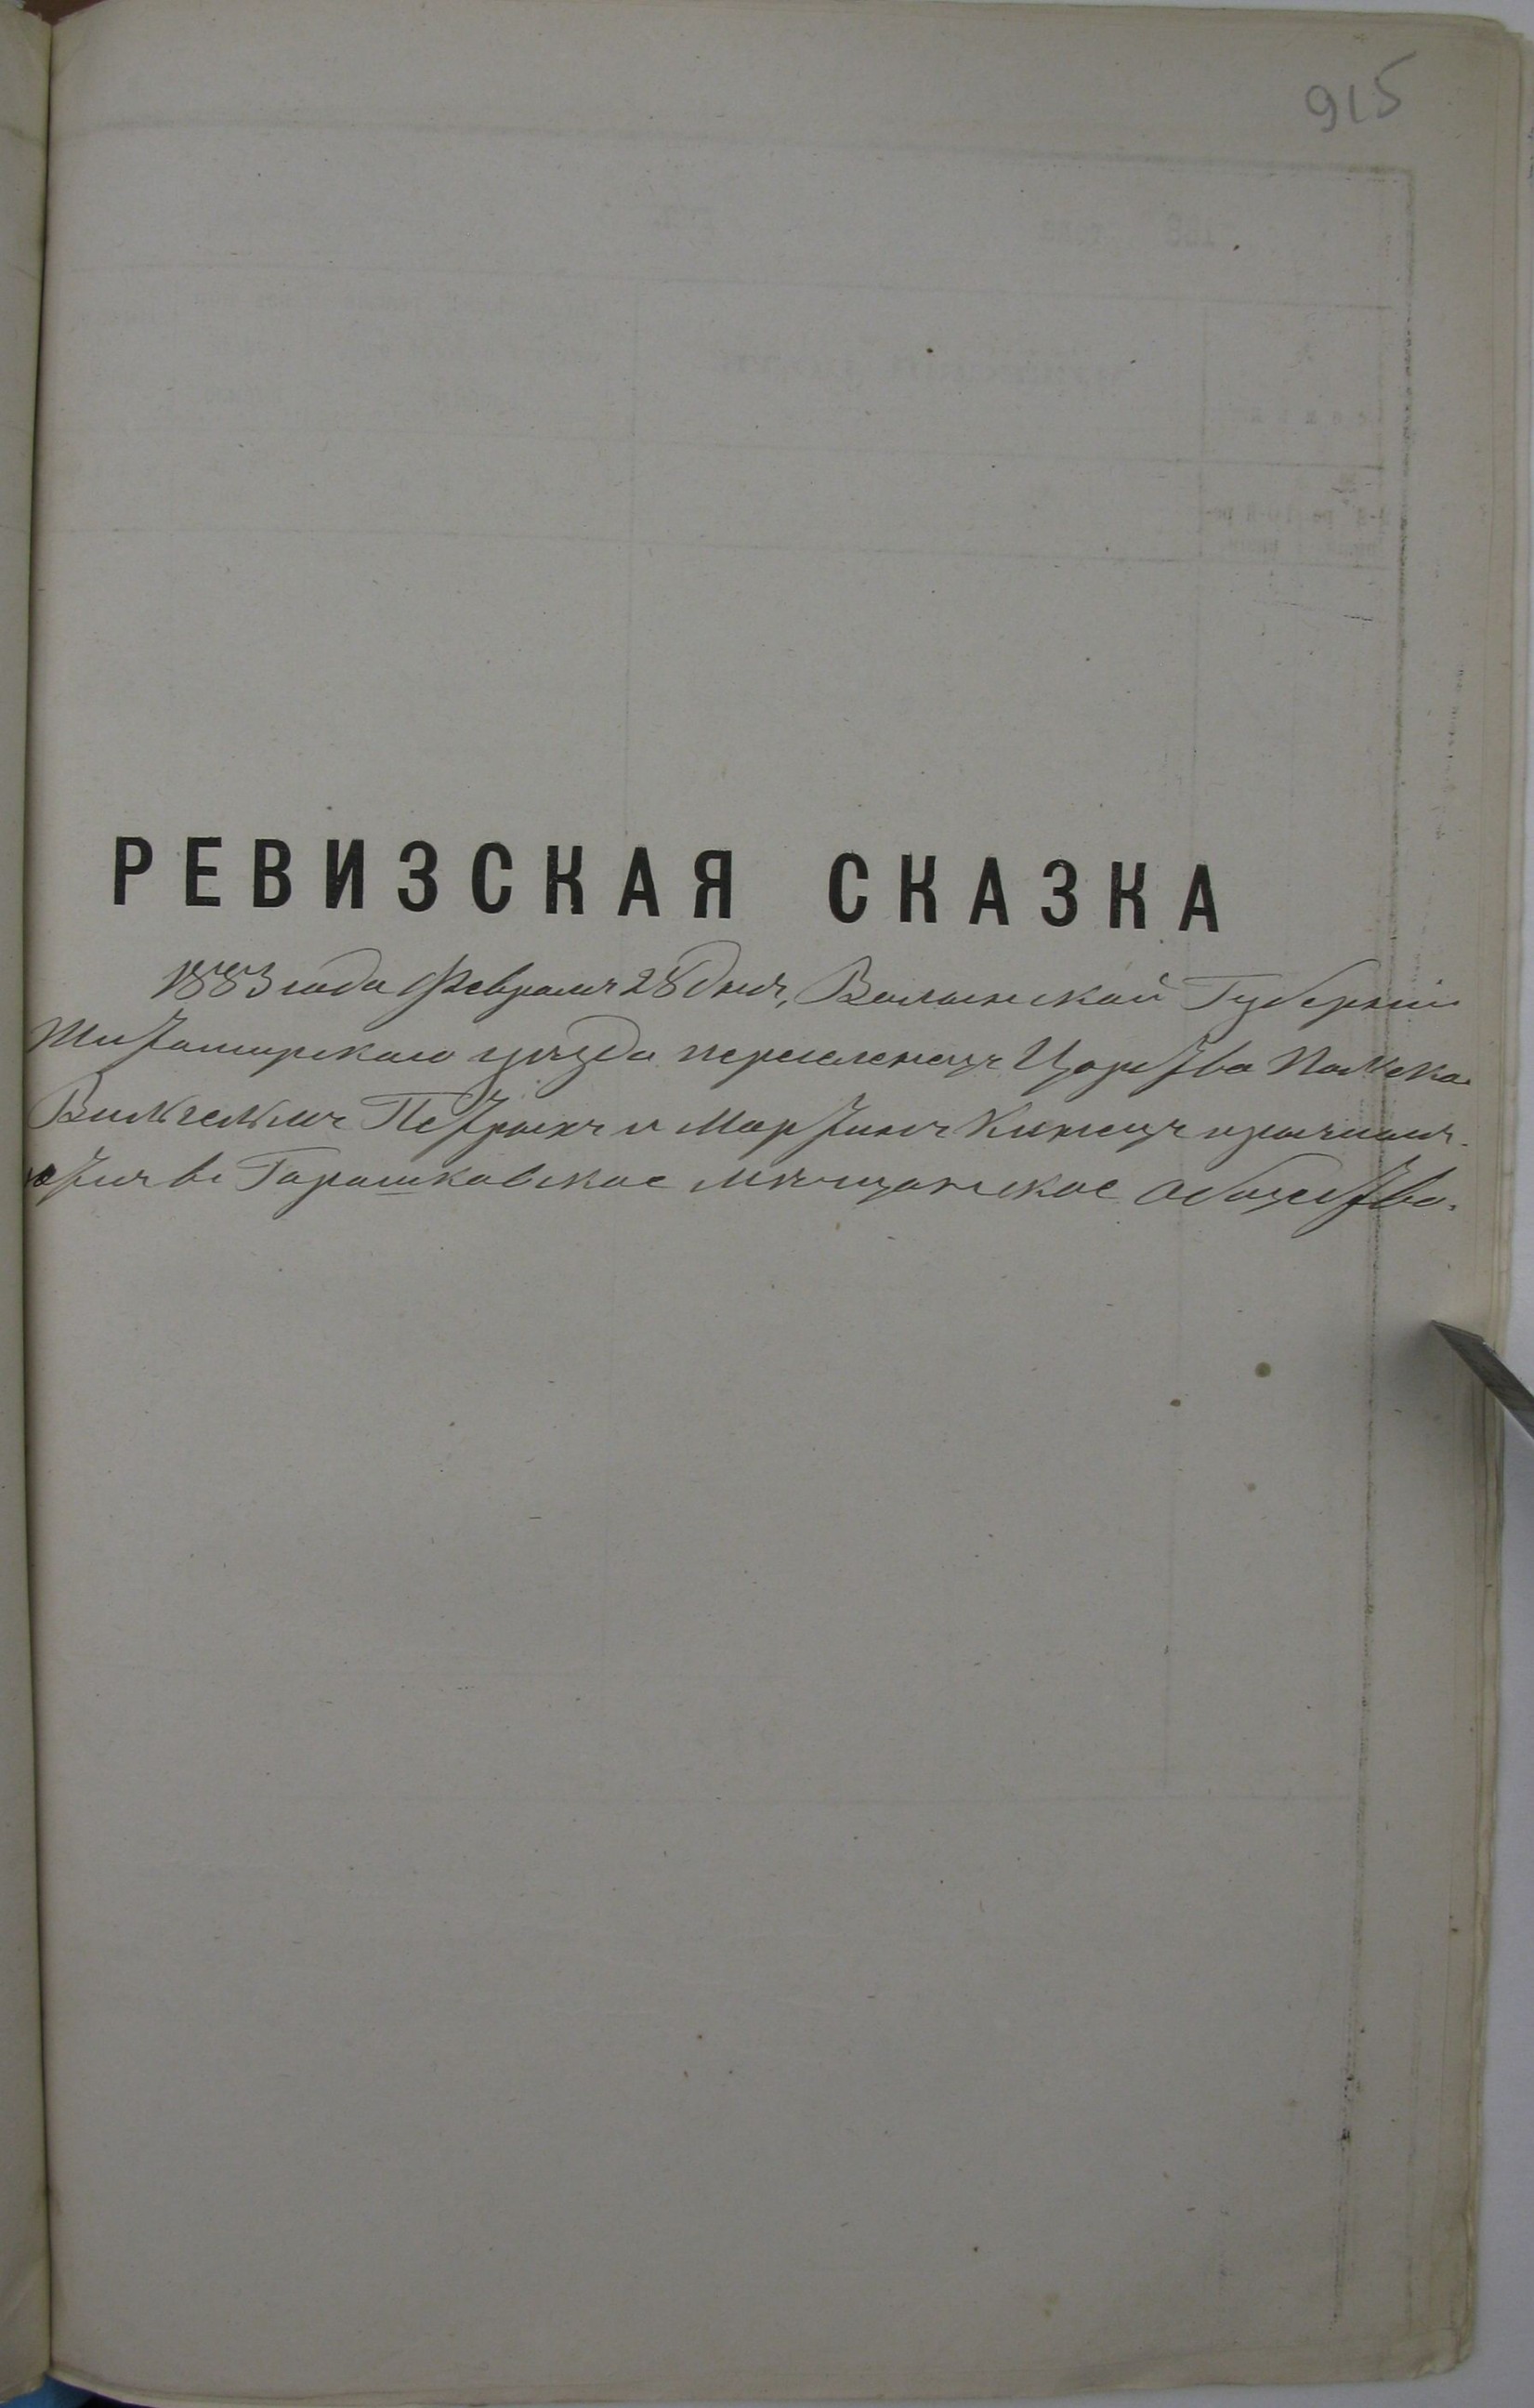 915
РЕВИЗСКАЯ СКАЗКА
1883 года Февраля 28 дня, Волынской Губерніи
Житомирскаго уѣзда переселенецъ Царства Польска
Вильгельмъ Петрыкъ и Мартинъ
въ Горошковское мѣщанское общество.